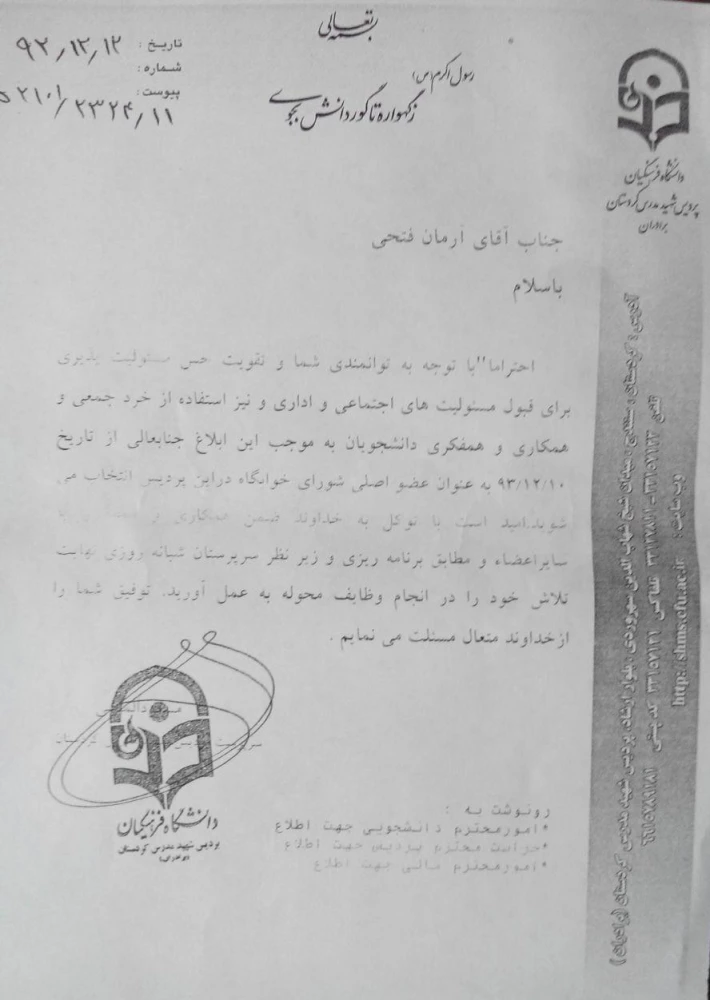 بسمه تعالی
رسول اکرم (س)
زگهواره تا گور دانش بجوی
تاریخ : ۹۲,۱۲,۱۲
شماره :
پیوست :
۵۲۱۰۱/۲۳۲۴/۱۱
دانشگاه فرهنگیان
پردیس شهید مدرس کردستان
برادران
جناب آقای آرمان فتحی
باسلام
احتراما" با توجه به توانمندی شما و تقویت حس مسئولیت پذیری
برای قبول مسئولیت های اجتماعی و اداری و نیز استفاده از خرد جمعی و
همکاری و همفکری دانشجویان به موجب این ابلاغ جنابعالی از تاریخ
۹۳/۱۲/۱۰ به عنوان عضو اصلی شورای خوابگاه دراین پردیس انتخاب می
شوید.امید است با توکل به خداوند ضمن همکاری و
سایراعضاء و مطابق برنامه ریزی و زیر نظر سرپرستان شبانه روزی نهایت
تلاش خود را در انجام وظایف محوله به عمل آورید. توفیق شما را
ازخداوند متعال مسئلت می نمایم .
دانشگاه فرهنگیان
پردیس شهید مدرس کردستان
(برادران)
رونوشت به :
*امورمحترم دانشجویی جهت اطلاع
*حراست محترم پردیس جهت اطلاع
*امورمحترم مالی جهت اطلاع
آدرس : کردستان ، سنندج ، میدان شیخ شهاب الدین سهروردی ، بلوار ارشاد، پردیس شهید مدرس کردستان (برادران)
تلفن
فاکس
کد پستی
وب سایت : http://shms.cfu.ac.ir